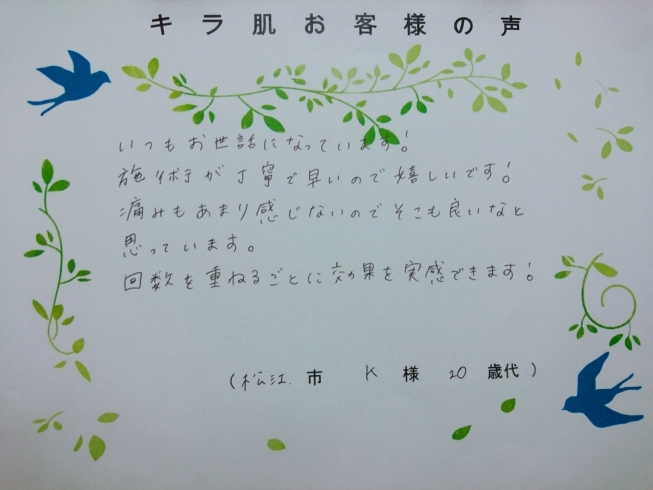 キラ肌お客様の声
いつもお世話になっています!
施術が丁寧で早いので嬉しいです!
痛みもあまり感じないのでそこも良いなと
思っています。
回数を重ねるごとに効果を実感できます!
(松江 市 K 様 20 歳代)